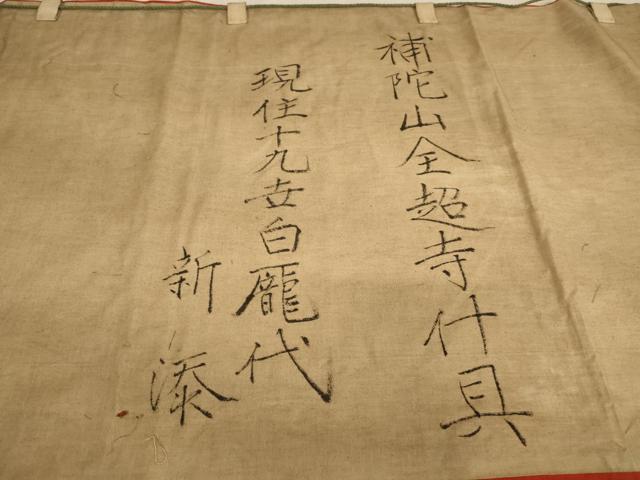 補陀山全超寺什具
現住十九世白龐代
新添